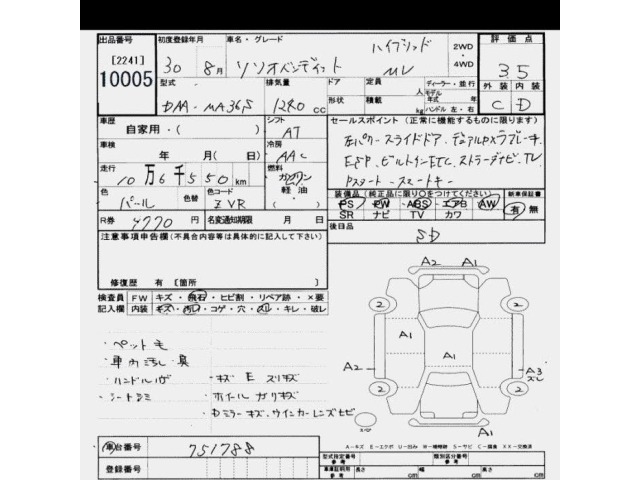 出品番号 初度登録年月 車名・グレード 2WD・4WD 評価点
[2241] 30 8月 ソリオバンディット ハイブリッド MV 3.5
10005 型式 排気量 ドア 定員 人 ディーラー・並行 外装 内装
DAA-MA36S cc 形状 積載 kg モデル年式 年 ハンドル 左・右 C D
車歴 シフト セールスポイント(正常に機能するものに限ります)
自家用・( ) AT 左パワースライドドア
車検 冷房 ESP ビルトインETC
年 月(日) AAC TV
走行 燃料 Pスタート スマートキー
10万6千550km ガソリン 軽油 装備品(純正品に限り〇をつけてください) 新車保証書
色 色替 色コード PS PW ABS エアB AW 有 無
パール ZVR SR ナビ TV カワ
R券 4770 名変通知期限 月 日 後日品
注意事項申告欄(不具合内容等は具体的に記入して下さい) SD
修復歴 有 [箇所 ]
検査員記入欄 FW キズ・飛石・ヒビ割・リペア跡・×要
内装 キズ・汚レ・コゲ・穴・スレ・キレ・破レ
・ペット毛
・車内汚し・臭
・ハンドルハゲ ・キズ E スリキズ
・シートシミ ・ホイールガリキズ
・ウインカーレンズヒビ
A2 A1
2 2
A1
A2 A1 A3
2 2
A1
A-キズ E-エクボ U-凹み W-補修跡 S-サビ C-腐食 XX-交換済
車台番号 751788 型式指定番号 参考 類別区分番号 参考
登録番号 車庫証明用 参考 長さ cm 幅 cm 高さ cm